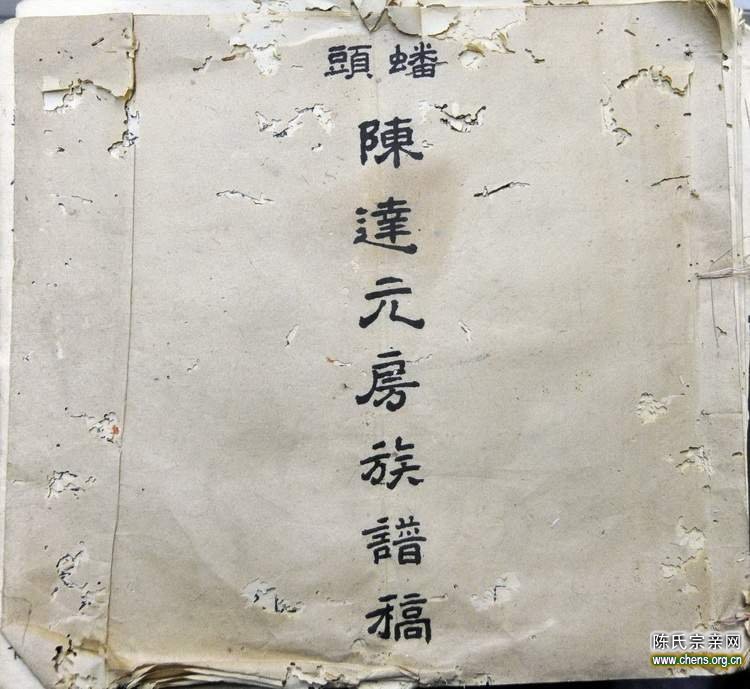 蟠頭
陳達元房族譜稿
陈氏宗亲网
www.chens.org.cn